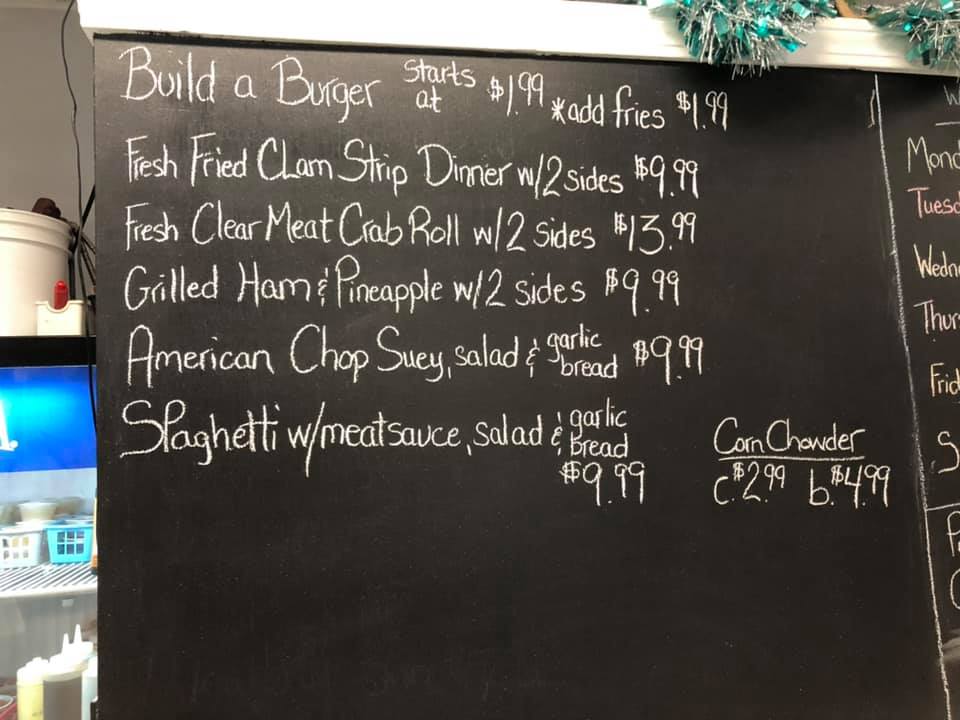 Build a Burger starts at $1.99 *add fries $1.99
Fresh Fried CLam Strip Dinner w/2 sides $9.99
Fresh Clear Meat Crab Roll w/2 sides $13.99
Grilled Ham & Pineapple w/2 sides $9.99
American Chop Suey, salad & garlic bread $9.99
Spaghetti w/meatsauce, salad & garlic bread
$9.99
Corn Chowder
c. $2.99 b. $4.99
Mond
Tuesd
Wedne
Thur
Frid
S